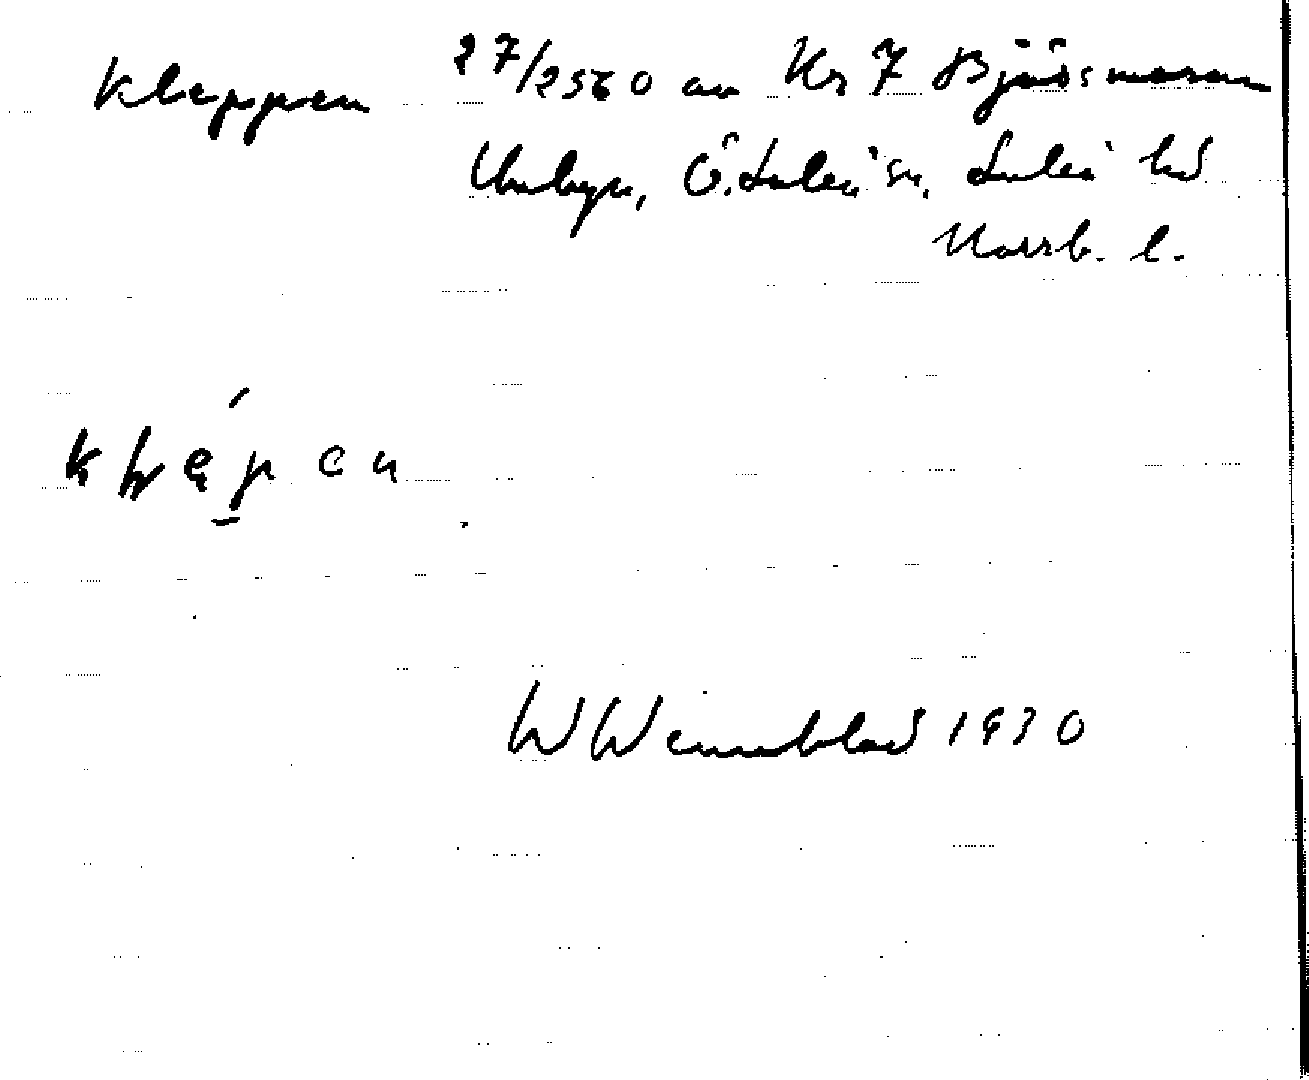 Kleppen 27/2560 av Kr 7 Bjäsmoran
Unbyn, Ö. Luleå sn, Luleå hd
Norrb. l.
W Wenneblad 1930